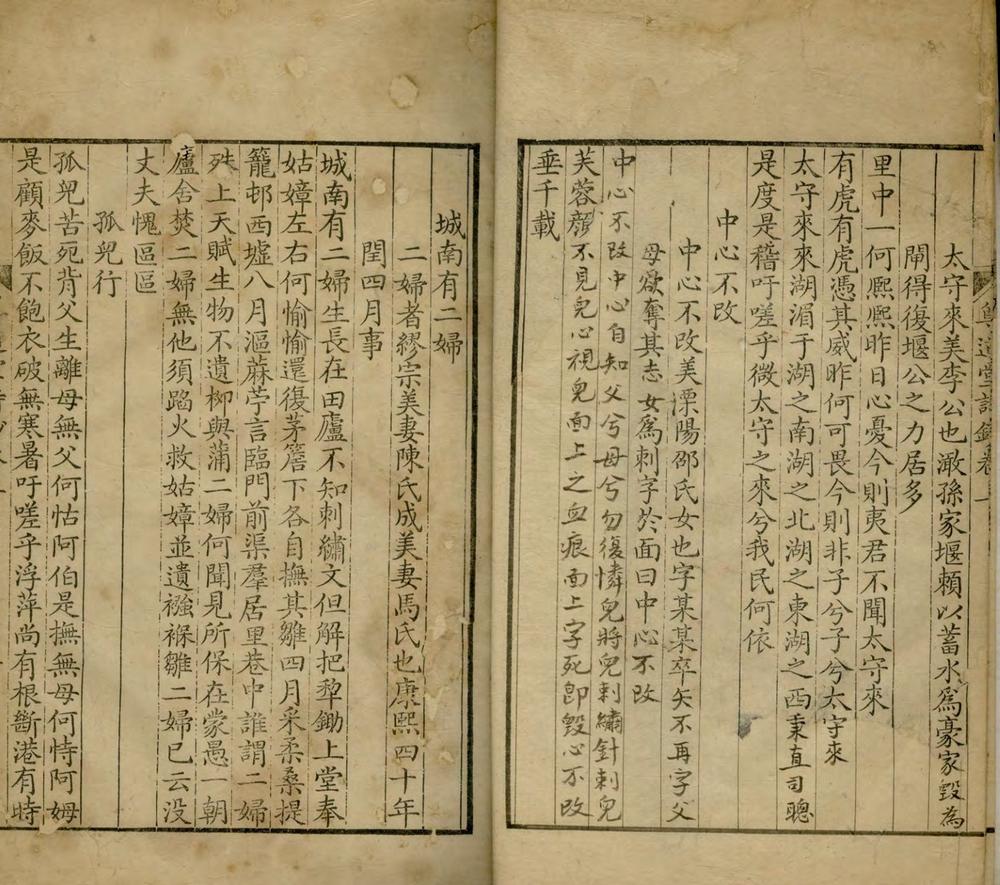 太守來美李公也漖孫家堰賴以蓄水爲豪家毀為
閘得復堰公之力居多
里中一何熈熈昨日心憂今則夷君不聞太守來
有虎有虎憑其威昨何可畏今則非子兮子兮太守來
太守來來湖湄于湖之南湖之北湖之東湖之西秉直司聰
是度是稽吁嗟乎微太守之來兮我民何依
中心不改
中心不改美溧陽邵氏女也字某某卒矢不再字父
母欲奪其志女爲刺字於面曰中心不改
中心不改中心自知父兮母兮勿復憐兒將兒刺繡針刺兒
芙蓉顏不見兒心視兒面上之血痕面上字死即毀心不改
垂千載
城南有二婦
二婦者繆宗美妻陳氏成美妻馬氏也康熙四十年
閏四月事
城南有二婦生長在田廬不知刺繡文但解把犂鋤上堂奉
姑嫜左右何愉愉還復茅簷下各自撫其雛四月采柔桑提
籠邨西墟八月漚蔴苧言臨門前渠羣居里巷中誰謂二婦
殊上天賦生物不遺柳與蒲二婦何聞見所保在蒙愚一朝
廬舍焚二婦無他須蹈火救姑嫜並遺襁褓雛二婦已云没
丈夫愧區區
孤兒行
孤兒苦死背父生離母無父何怙阿伯是撫無母何恃阿姆
是顧麥飯不飽衣破無寒暑吁嗟乎浮萍尚有根斷港有時